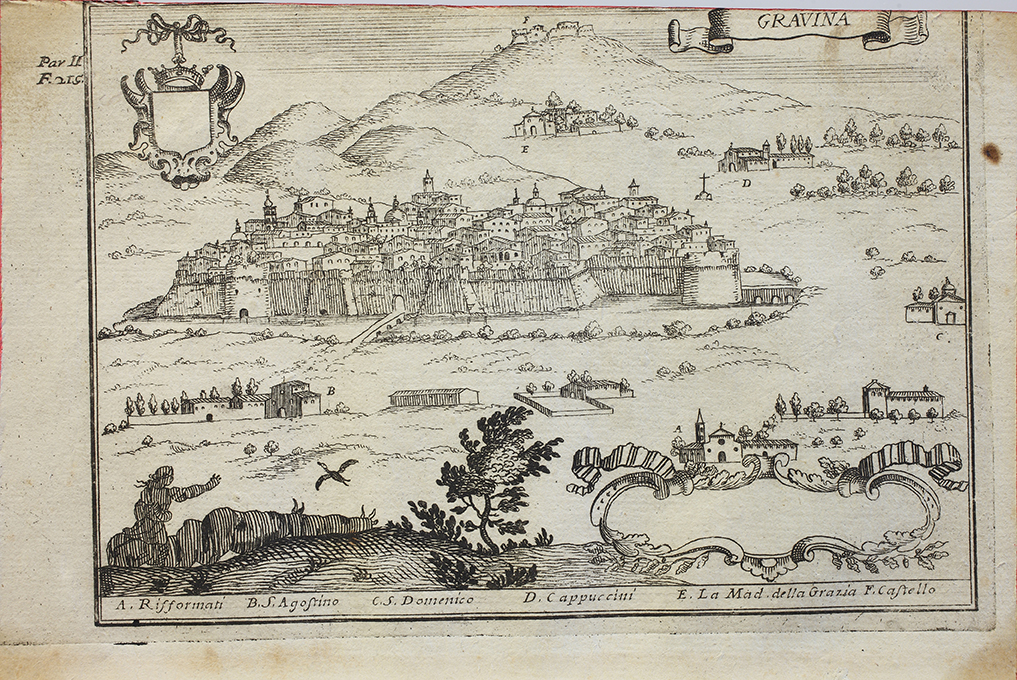 GRAVINA
Par II
F. 215.
F
E
D
C
B
A
A. Rifformati B. S. Agostino C. S. Domenico D. Cappuccini E. La Mad. della Grazia F. Castello